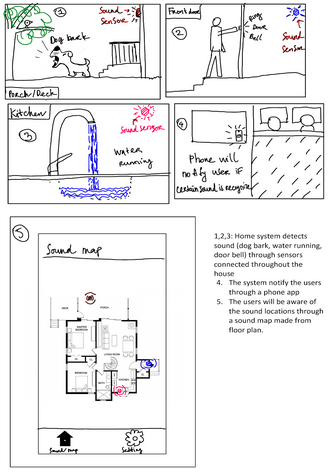 1
Sound
Sensor
Dog bark
Porch/Deck
2
Front door
Ring
Door
Bell
Sound
Sensor
Kitchen
3
Sound sensor
Water
running
4
Phone will
notify user if
certain sound is recognize
5
Sound map
DECK
PORCH
MASTER
BEDROOM
LIVING ROOM
BEDROOM
BATH
KITCHEN
Sound map
Setting
1,2,3: Home system detects
sound (dog bark, water running,
door bell) through sensors
connected throughout the
house
4. The system notify the users
through a phone app
5. The users will be aware of
the sound locations through
a sound map made from
floor plan.